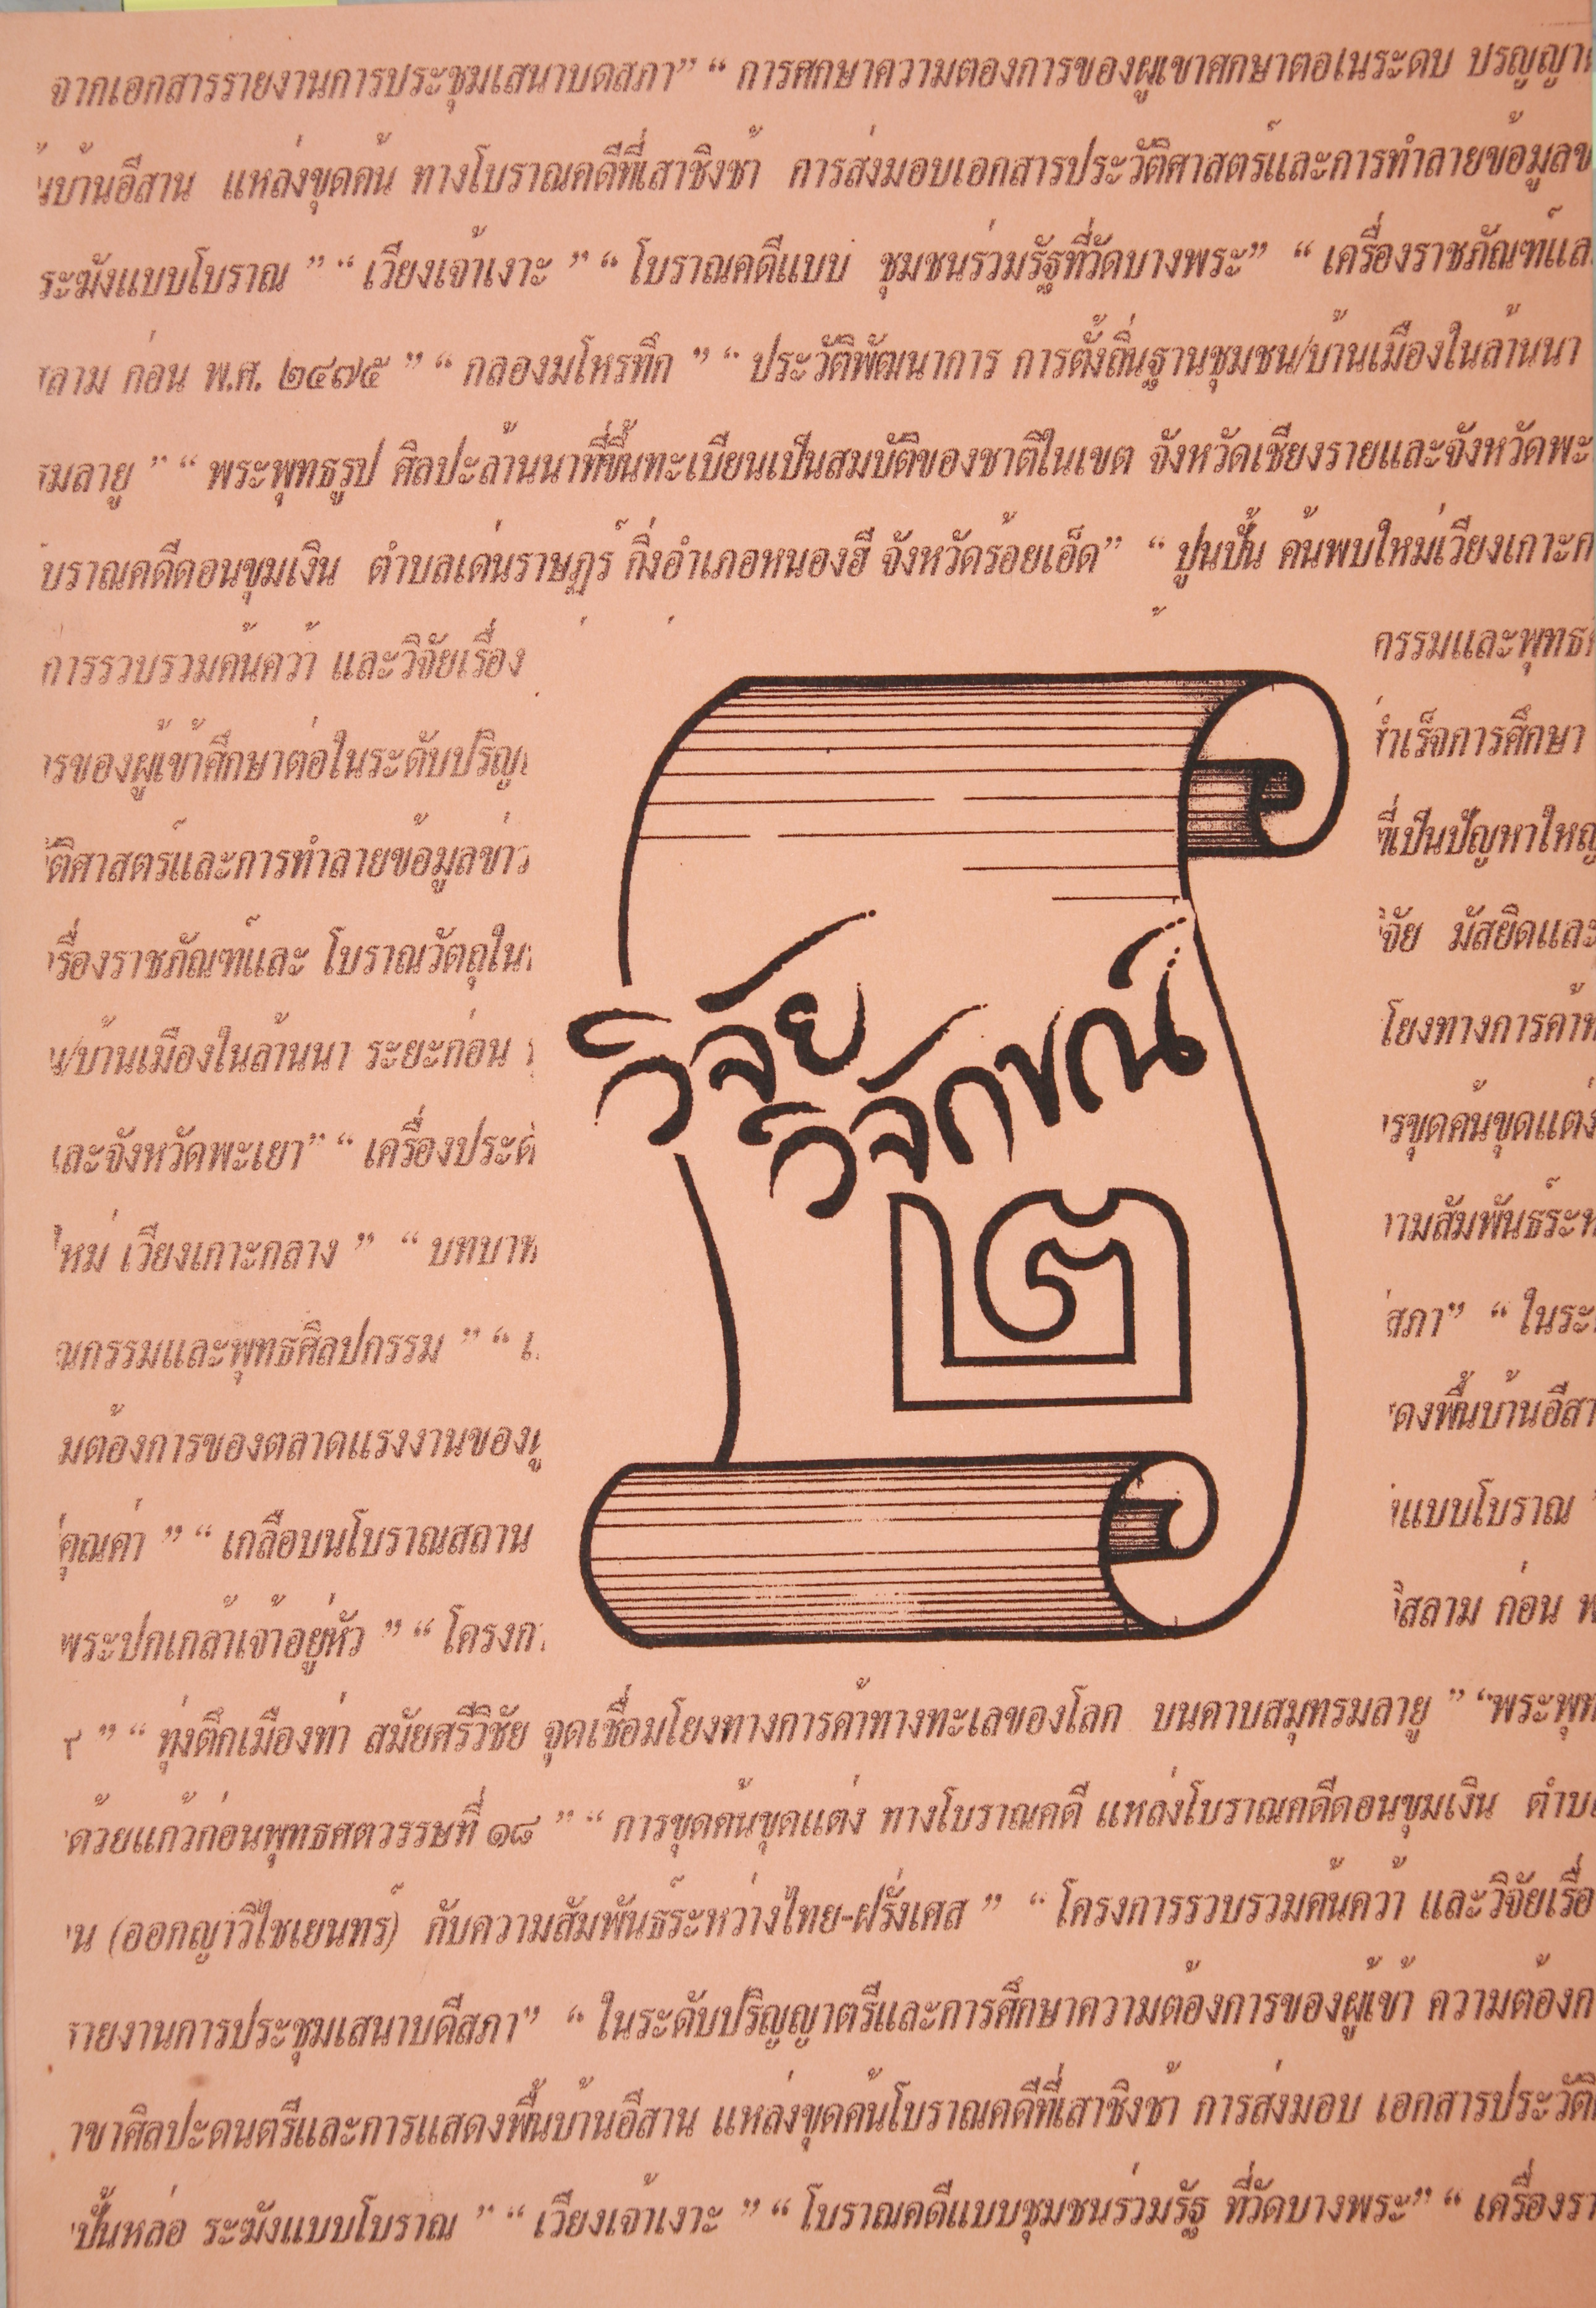 จากเอกสารรายงานการประชุมเสนาบดสภา” “ การศกษาความตองการของผูเขาศกษาตอเนระดบ ปรญญา
นบ้านอีสาน แหล่งขุดค้น ทางโบราณคดีที่เสาชิงช้า การส่งมอบเอกสารประวัติศาสตร์และการทำลายข้อมูลข
ระฆังแบบโบราณ ” “ เวียงเจ้าเงาะ ” “ โบราณคดีแบบ ชุมชนร่วมรัฐที่วัดบางพระ” “ เครื่องราชภัณฑ์แล
สลาม ก่อน พ.ศ. ๒๔๗๕ ” “ กลองมโหรทึก ” “ ประวัติพัฒนาการ การตั้งถิ่นฐานชุมชน/บ้านเมืองในล้านนา
รมลายู ” “ พระพุทธรูป ศิลปะล้านนาที่ขึ้นทะเบียนเป็นสมบัติของชาติในเขต จังหวัดเชียงรายและจังหวัดพะ
บราณคดีดอนขุมเงิน ตำบลเด่นราษฎร์ กิ่งอำเภอหนองฮี จังหวัดร้อยเอ็ด” “ ปูนปั้น ค้นพบใหม่เวียงเกาะก
การรวบรวมค้นคว้า และวิจัยเรื่อง กรรมและพุทธศ
ารของผู้เข้าศึกษาต่อในระดับปริญ สำเร็จการศึกษา
ัติศาสตร์และการทำลายข้อมูลข่าว ที่เป็นปัญหาใหญ
รื่องราชภัณฑ์และ โบราณวัตถุใน วิจัย มัสยิดและ
วิจัย
น/บ้านเมืองในล้านนา ระยะก่อน โยงทางการค้าท
วิจักขณ์
และจังหวัดพะเยา” “ เครื่องประด ารขุดค้นขุดแต่ง
๒
ใหม่ เวียงเกาะกลาง ” “ บทบาท ามสัมพันธ์ระห
ณกรรมและพุทธศิลปกรรม ” “ เ สภา” “ ในระ
มต้องการของตลาดแรงงานของผู ดงพื้นบ้านอีสา
คุณค่า ” “ เกลือบนโบราณสถาน งแบบโบราณ ”
พระปกเกล้าเจ้าอยู่หัว ” “ โครงกา อิสลาม ก่อน พ
” “ ทุ่งตึกเมืองท่า สมัยศรีวิชัย จุดเชื่อมโยงทางการค้าทางทะเลของโลก บนคาบสมุทรมลายู ” “พระพุท
ด้วยแก้วก่อนพุทธศตวรรษที่ ๑๘ ” “ การขุดค้นขุดแต่ง ทางโบราณคดี แหล่งโบราณคดีดอนขุมเงิน ตำบล
น (ออกญาวิไชเยนทร์) กับความสัมพันธ์ระหว่างไทย-ฝรั่งเศส ” “ โครงการรวบรวมค้นคว้า และวิจัยเรื่อ
รายงานการประชุมเสนาบดีสภา” “ ในระดับปริญญาตรีและการศึกษาความต้องการของผู้เข้า ความต้องก
าขาศิลปะดนตรีและการแสดงพื้นบ้านอีสาน แหล่งขุดค้นโบราณคดีที่เสาชิงช้า การส่งมอบ เอกสารประวัติ
ปั้นหล่อ ระฆังแบบโบราณ ” “ เวียงเจ้าเงาะ ” “ โบราณคดีแบบชุมชนร่วมรัฐ ที่วัดบางพระ” “ เครื่องรา